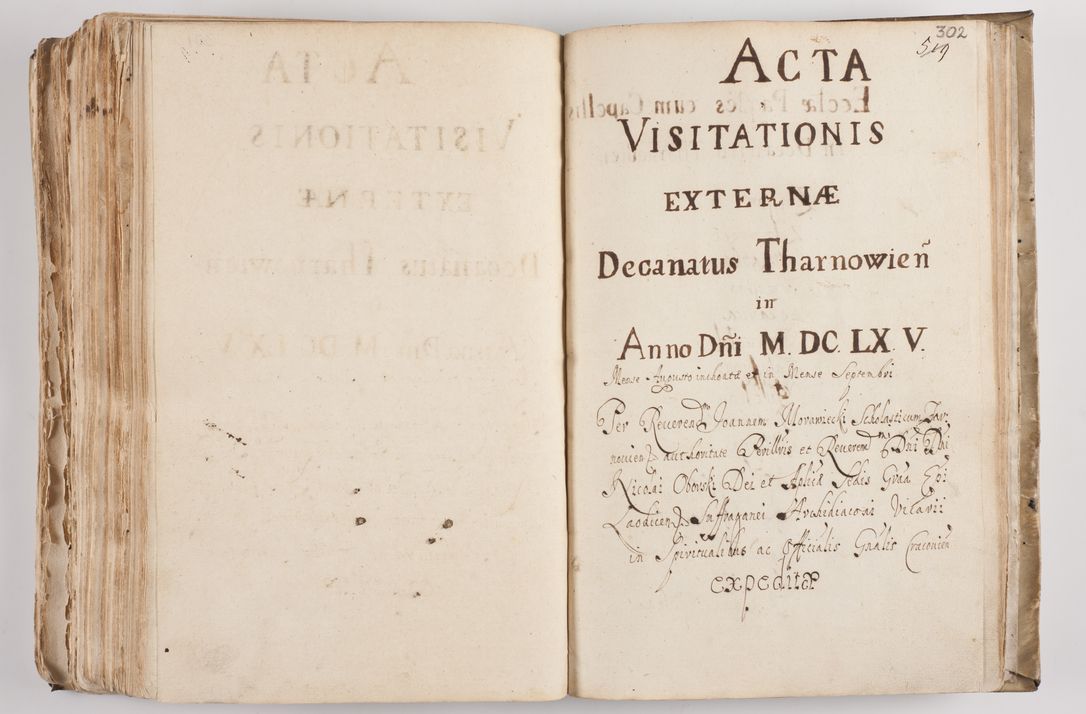 302
519
ACTA
VISITATIONIS
EXTERNÆ
Decanatus Tharnowien̄
in
Anno Dn̄i M. DC. LX V.
Mense Augusto inchoatæ et in Mense Septembri
Per Reuerend̄m Joannem Morawiecki Scholasticum Tar
nouien authoritate Perillris et Reuerend̄mi Dni Dni
Nicolai Oborski Dei et Aplica Sedis Graa Epi
Laodicen Suffraganei Archidiaconi Vicarii
in Spiritualibus ac Officialis Gn̄alis Cracouien
expeditæ